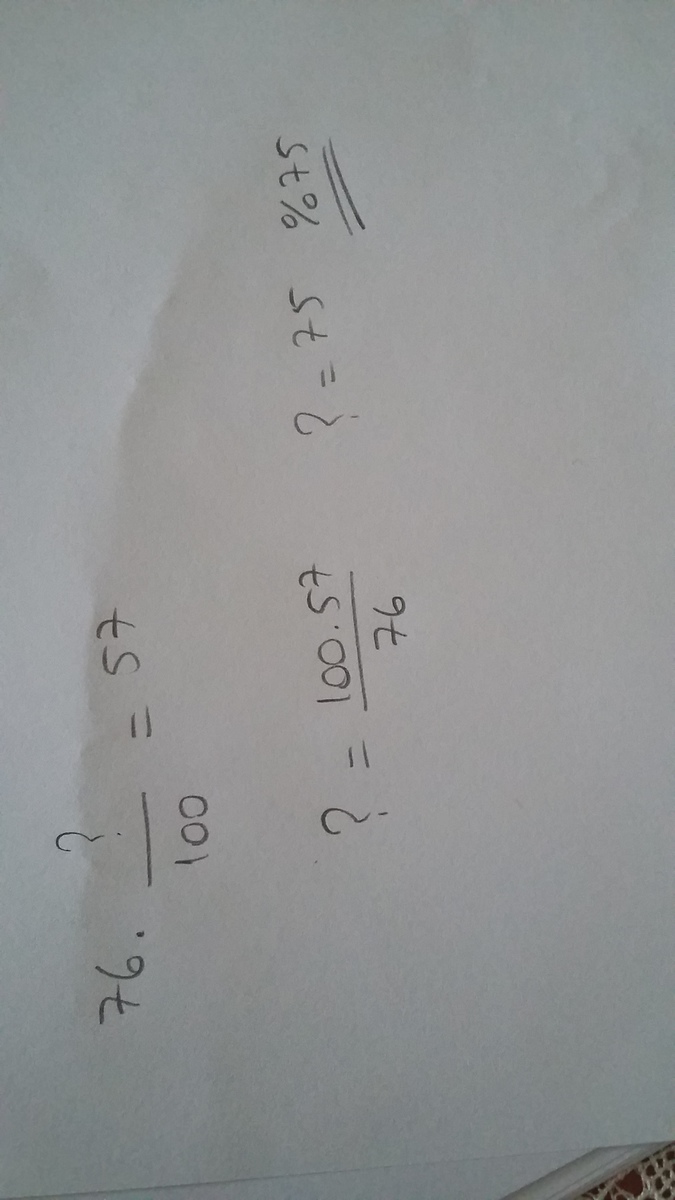 76 . ?/100 = 57
? = 100.57/76 ? = 75 %75